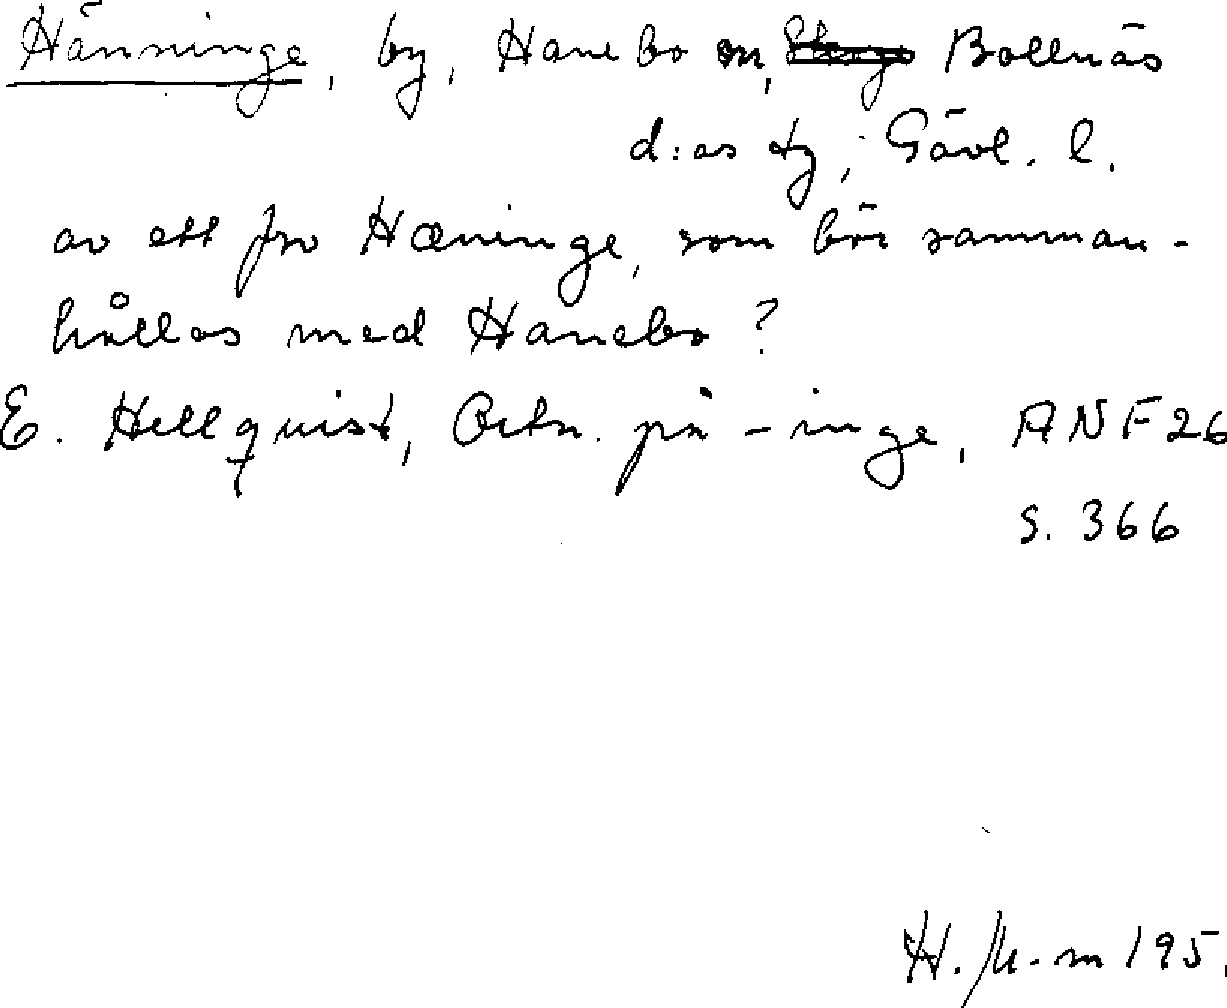 Hänninge, by, Hanebo sn, Bollnäs
d:as tg, Gävl. l.
av ett fsv Hæninge, som bör samman-
hållas med Hanebo?
E. Hellquist, Ortn. på -inge, ANF 26
s. 366
H. 195.